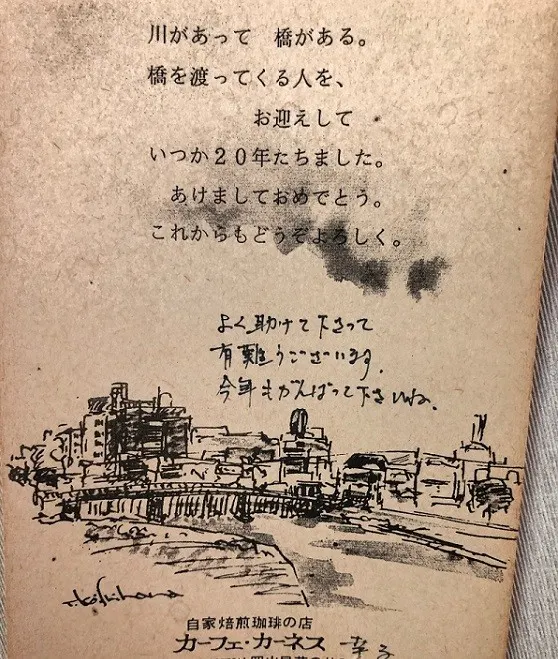 川があって　橋がある。
橋を渡ってくる人を、
お迎えして
いつか２０年たちました。
あけましておめでとう。
これからもどうぞよろしく。
よく助けて下さって
有難うございます。
今年もがんばって下さいね。
自家焙煎珈琲の店
カーフェ・カーネス
幸子